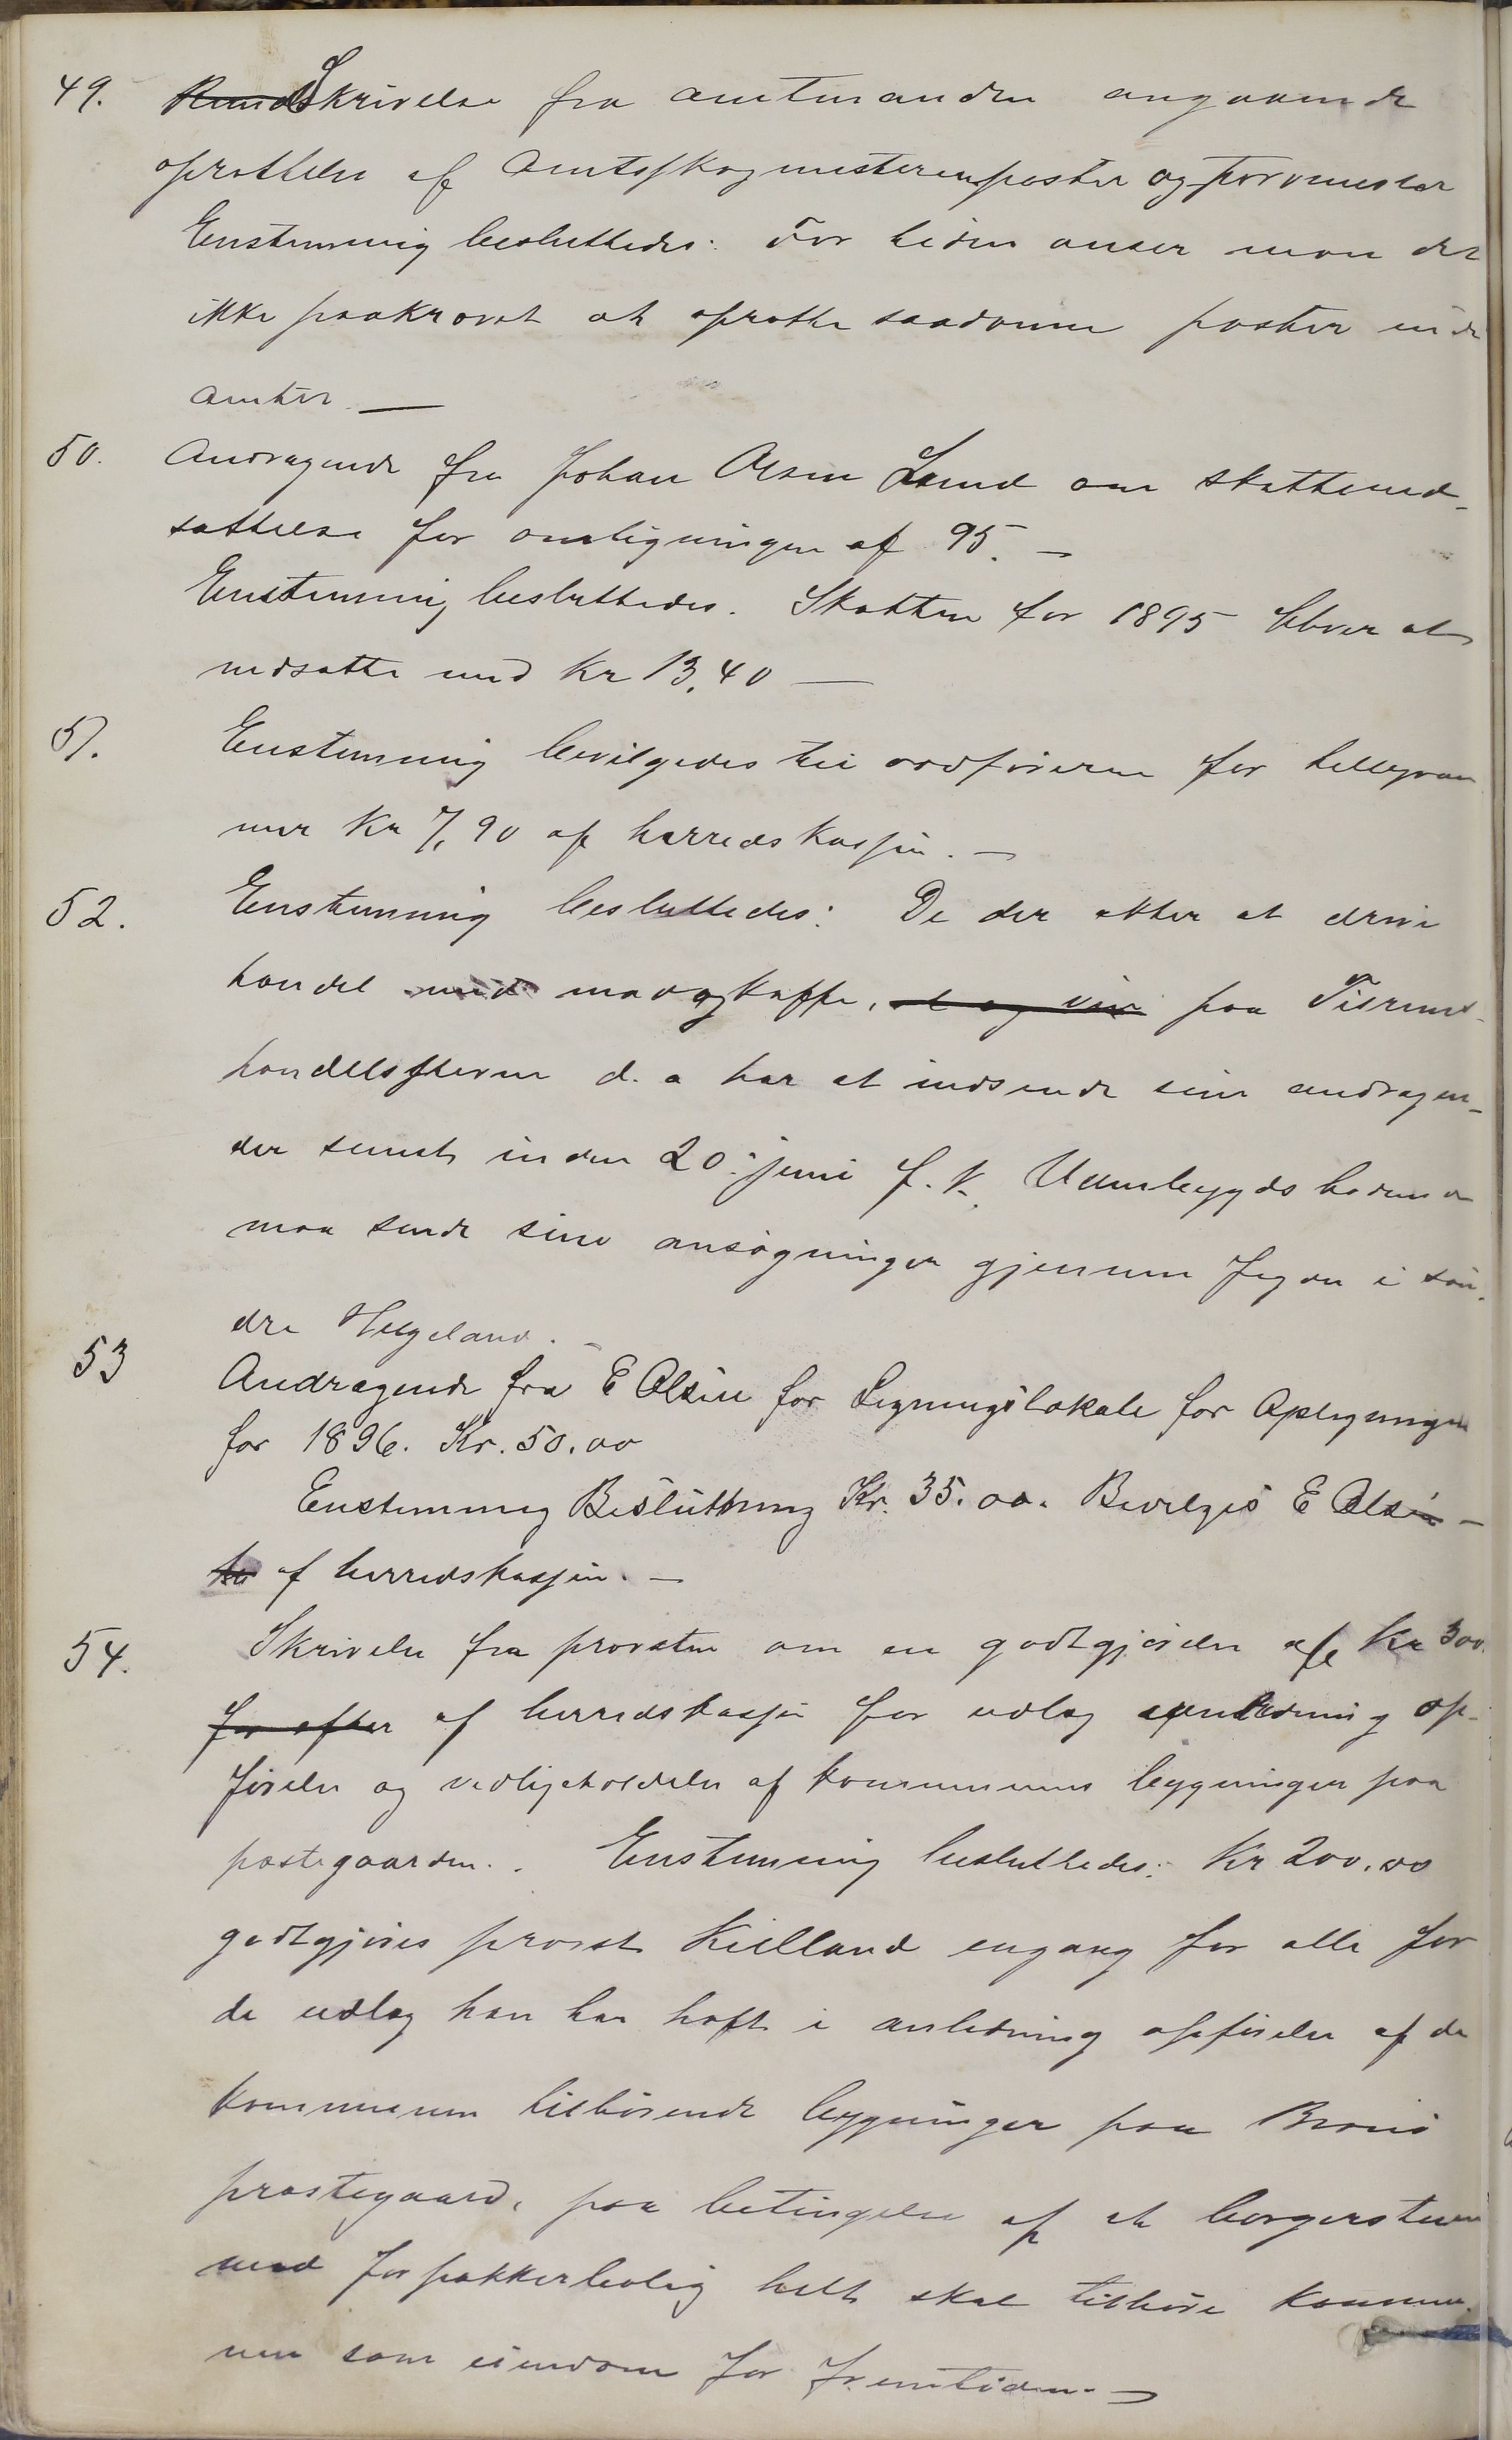 49. ~~Rund~~Skrivelse fra amtmanden angaaende
oprettelse af Amtsskogmesterensposter og
Enstemmig besluttedes: For tiden anser man det
ikke paakrævet at oprette saadanne poster i
amtet. —
50. Andragende fra Johan Olsen Lund om skattened-
sættelse for omligningen af 95. —
Enstemmig besluttedes. Skatten for 1895 bliver at
nedsætte med Kr 13,40 —
51. Enstemmig bevilgedes til ordføreren for tellegram
mer Kr 7,90 af herredskassen. —
52. Enstemmig besluttedes: De der akter at drive
handel med mad og kaffe, ~~øl og vin~~ paa Tilrem-
handelsstevne d. a har at indsende sine andragen-
der senest inden 20. juni f. k. Udenbygds boende
maa sende sine ansøgninger gjennem fogden i søn-
dre Helgeland. —
53 Andragende fra E Olsen for Ligningslokale for Opligningen
for 1896. Kr. 50.00
Enstemmig Beslutning Kr. 35.00. Bevilges E Olsen —
af herredskassen. —
54. Skrivelse fra provsten om en godtgjørelse af Kr 300.
~~for efter~~ af herredskassen for udlæg anledning op-
førelse og vedligeholdelse af kommunens bygninger paa
prestegaarden. . Enstemmig besluttedes: Kr 200.00
godtgjøres provst Kielland engang for alle for
de udlæg han har haft i anledning opførelse af de
kommunen tilhørende bygninger paa Brønø
præstegaard, paa betingelse af at borgerstuen
med forpakterbolig helt skal tilhøre kommu-
nen som eiendom for fremtiden. —